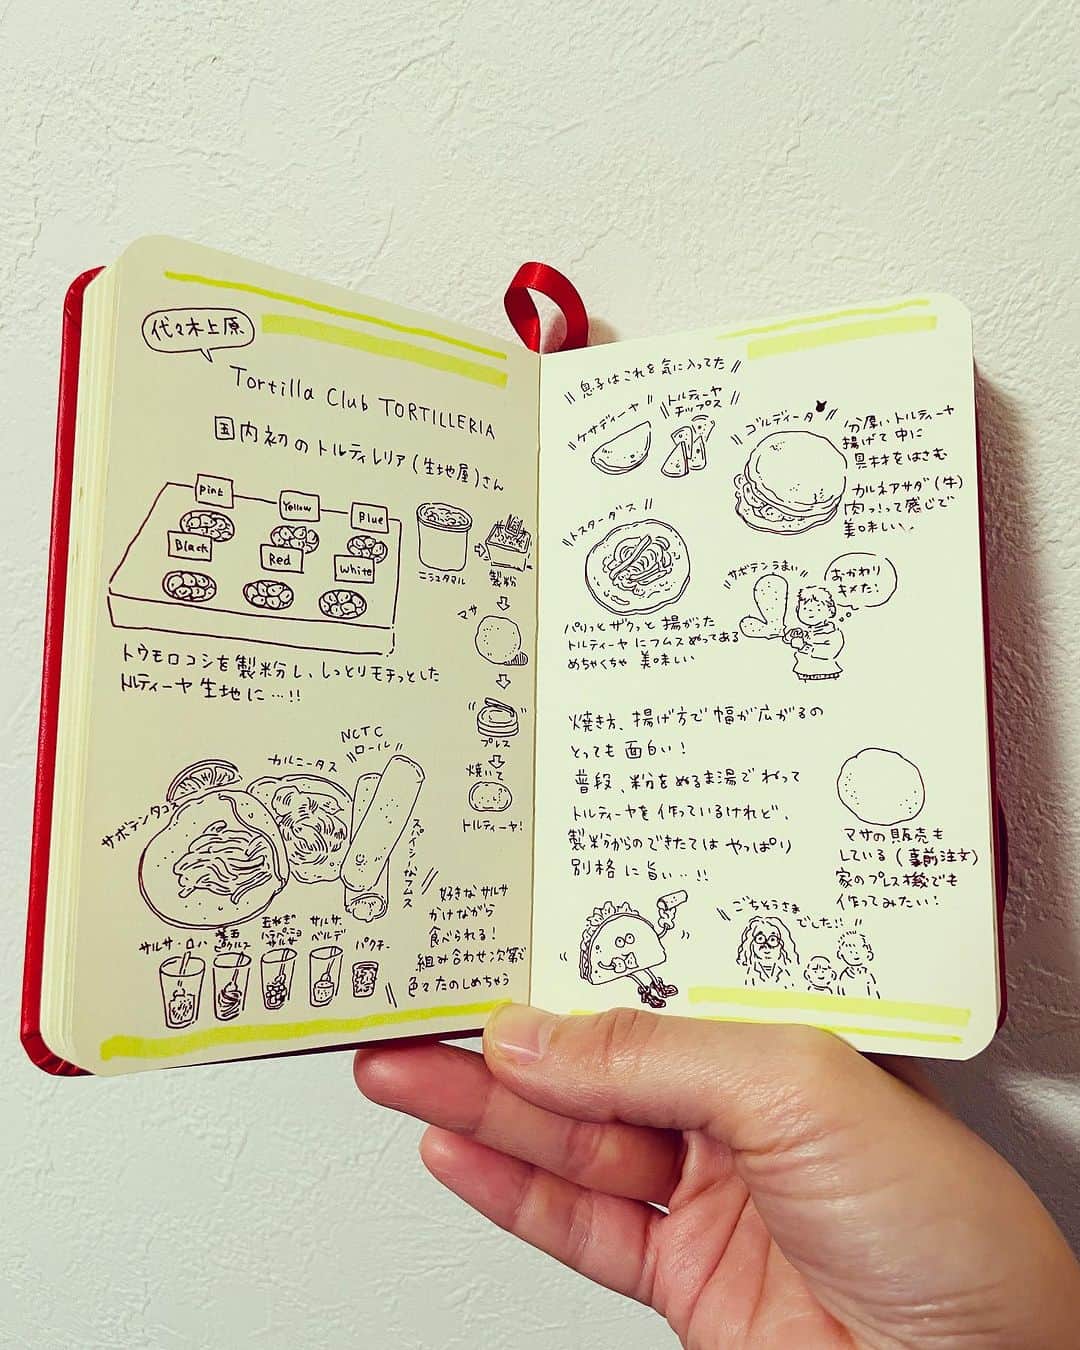 代々木上原
Tortilla Club TORTILLERIA
国内初のトルティレリア(生地屋)さん
pink
Yellow
Blue
Black
Red
White
ニシュタマル
製粉
マサ
プレス
焼いて
トルティーヤ!
トウモロコシを製粉し、しっとりモチっとした
トルティーヤ生地に…!!
サボテンタコス
カルニータス
NCTC
ロール
スパイシーなフムス
サルサ・ロハ
ピクルス
玉ねぎ
ハラペーニョ
サルサ
サルサ・
ベルデ
パクチー
好きなサルサ
かけながら
食べられる!
組み合わせ次第で
色々たのしめちゃう
息子はこれを気に入ってた
ケサディーヤ
トルティーヤ
チップス
ゴルディータ
分厚いトルティーヤ
揚げて中に
具材をはさむ
カルネアサダ(牛)
肉っ!って感じで
美味しい
トスターダス
パリっとザクっと揚がった
トルティーヤにフムスぬってある
めちゃくちゃ美味しい
サボテンうまい
おかわり
キメた!
焼き方、揚げ方で幅が広がるの
とっても面白い!
普段、粉をぬるま湯でねって
トルティーヤを作っているけれど、
製粉からのできたてはやっぱり
別格に旨い…!!
マサの販売も
している(事前注文)
家のプレス機でも
作ってみたい!
ごちそうさま
でした!!